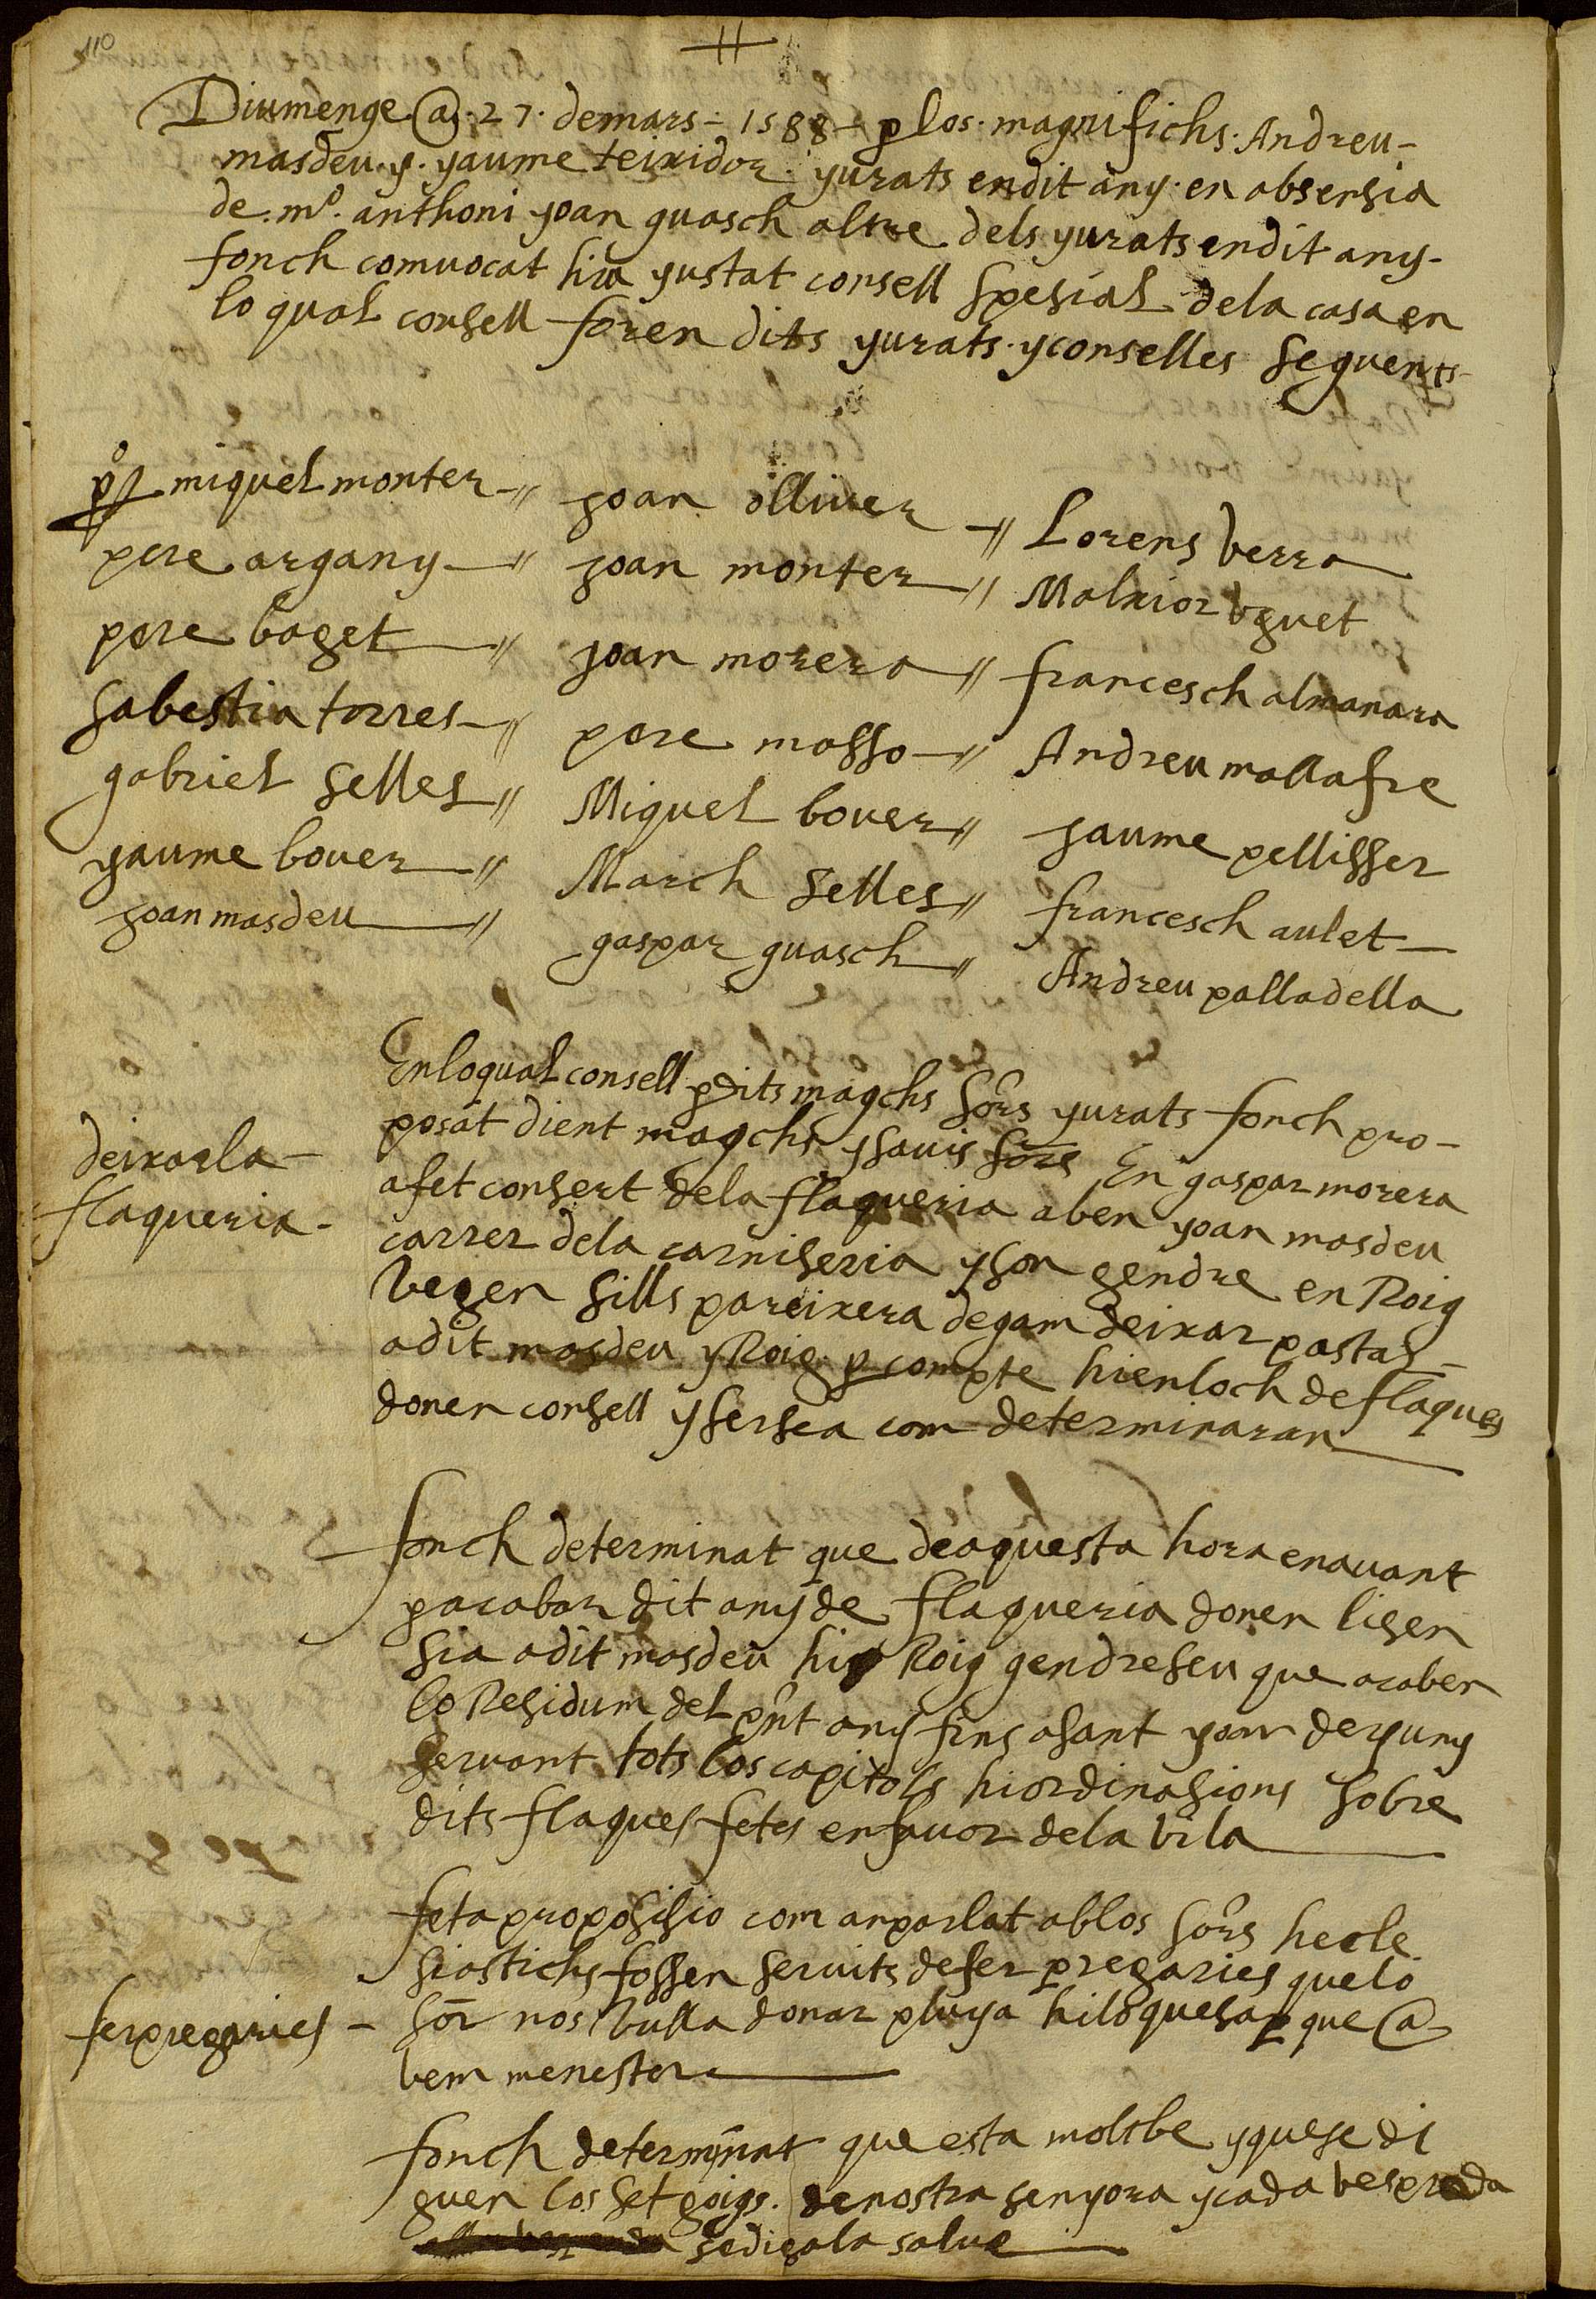 110
Diumenge @ · 27 · demars - 1588 - p los · magnifichs · Andreu -
masdeu · y · yaume teixidor · yurats endit any · en absensia
de · mº · anthoni yoan guasch altre dels yurats endit any -
fonch comuocat hiu yustat consell spesial dela casa en
lo qual consell foren dits yurats · yconselles seguents -
miquel monter - // yoan olliuer - // Lorens verra
pere argany - // yoan monter // Malxior vguet
pere baget // yoan morera // francesch almanara
sabestia torres - // pere masso - // Andreu mallafre
gabriel selles // Miquel bouer // yaume pellisser
yaume bouer // March selles // francesch aulet -
yoan masdeu // gaspar guasch // Andreu palladella
Enloqual consell p dits magchs sors yurats fonch pro -
posat dient magchs ysauis sors En gaspar morera
deixarla -
flaqueria -
afet consert dela flaqueria aben yoan masdeu
carrer dela carniseria yson gendre en Roig
vegen sills pareixera degam deixar pastar -
adit masdeu yRoig p compte hienloch de flaques
donen consell ysersea com determinaran
fonch determinat que deaquesta hora enauant
pacabar dit any de flaqueria donen lisen
sia adit masdeu hi Roig gendreseu que acaben
lo Residum del pnt any fins asant yoan deyuny
seruant tots los capitols hiordinasions sobre
dits flaques fetes enfauor dela vila
feta proposisio com anparlat ablos sors hecle
siastichs fossen seruits defer pregaries quelo
ferpregaries - sor nos vulla donar pluya hiloquesap que @
vem menester
fonch determinat que esta moltbe yquese di
guen los set goigs · denostra senyora ycada vesprada
sedigala salue